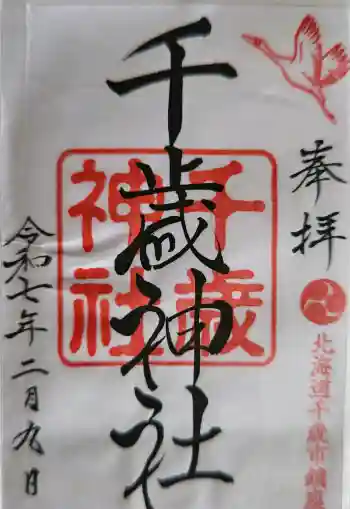 奉拝
北海道千歳市
千歳神社
千歳神社
令和七年二月九日